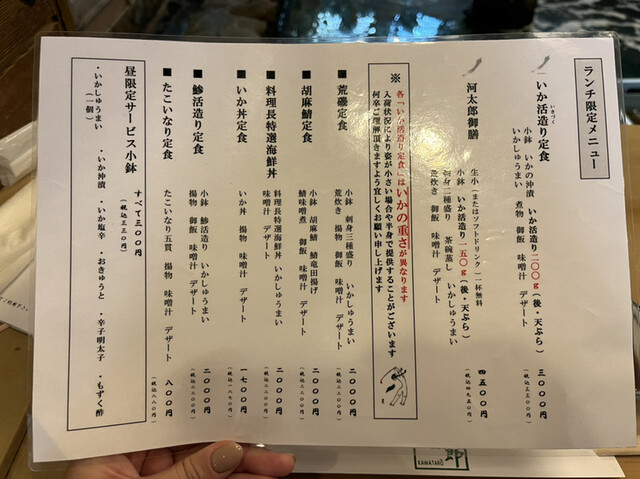 ランチ限定メニュー
いか活造り定食
いきづく
小鉢 いかの沖漬 いか活造り二〇〇g(後・天ぷら)
いかしゅうまい 煮物 御飯 味噌汁 デザート
三〇〇〇円
(税込三三〇〇円)
河太郎御膳
生小(またはソフトドリンク)一杯無料
小鉢 いか活造り一五〇g(後・天ぷら)
刺身二種盛り 茶碗蒸し いかしゅうまい
荒炊き 御飯 味噌汁 デザート
四五〇〇円
(税込四九五〇円)
※
各「いか活造り定食」はいかの重さが異なります
入荷状況により姿が小さい場合や半身で提供することがございます
何卒ご理解頂きますよう宜しくお願い申し上げます
■ 荒磯定食
小鉢 刺身三種盛り いかしゅうまい
荒炊き 揚物 御飯 味噌汁 デザート
二〇〇〇円
(税込二二〇〇円)
■ 胡麻鯖定食
小鉢 胡麻鯖 鯖竜田揚げ
鯖味噌煮 御飯 味噌汁 デザート
二〇〇〇円
(税込二二〇〇円)
■ 料理長特選海鮮丼
料理長特選海鮮丼 いかしゅうまい
味噌汁 デザート
二〇〇〇円
(税込二二〇〇円)
■ いか丼定食
いか丼 揚物 味噌汁 デザート
一七〇〇円
(税込一八七〇円)
■ 鯵活造り定食
小鉢 鯵活造り いかしゅうまい
揚物 御飯 味噌汁 デザート
二〇〇〇円
(税込二二〇〇円)
■ たこいなり定食
たこいなり五貫 揚物 味噌汁 デザート
八〇〇円
(税込八八〇円)
昼限定サービス小鉢 すべて三〇〇円
(税込三三〇円)
・いかしゅうまい ・いか沖漬 ・いか塩辛 ・おきゅうと ・辛子明太子 ・もずく酢
(一個)
郎
KAWATARO